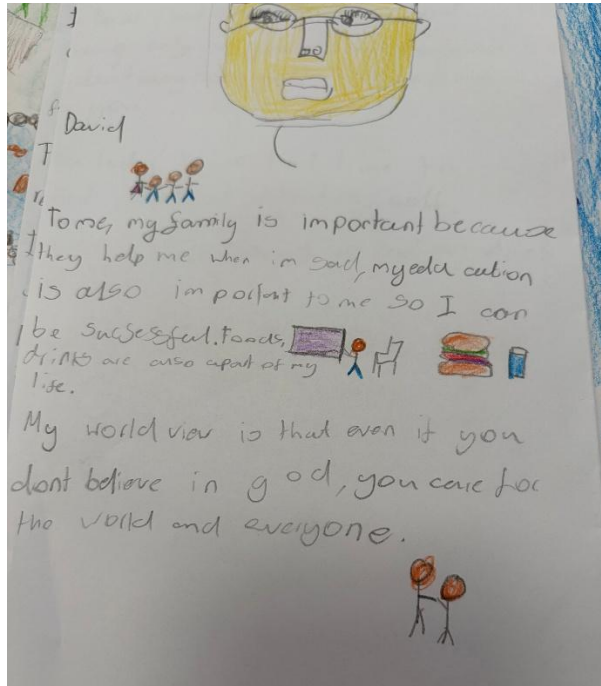 David
To me, my family is important because
they help me when im sad, my edu cation
is also important to me so I can
be sucsessful. Foods,
drinks are also apart of my
life.
My world view is that even if you
dont believe in god, you care for
the world and everyone.